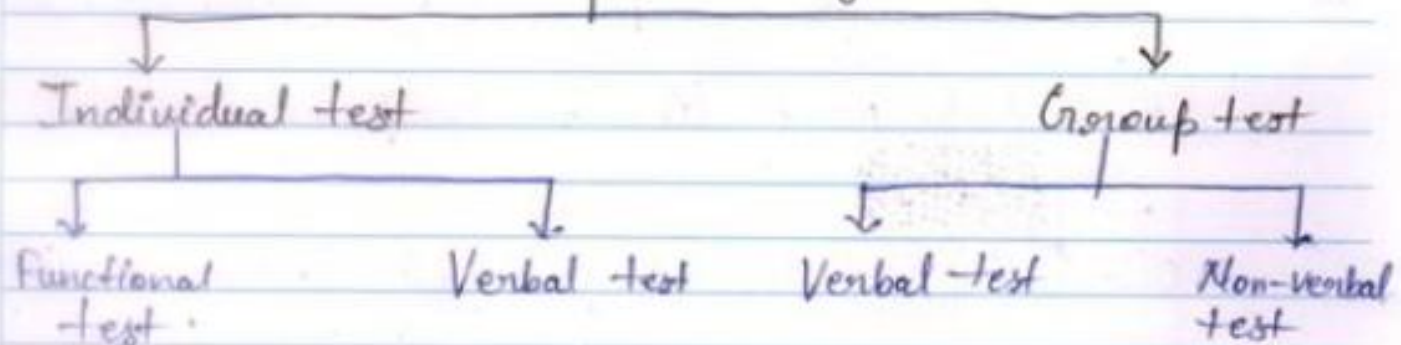 Individual test Group test
Functional Verbal test Verbal test Non-verbal
test. test